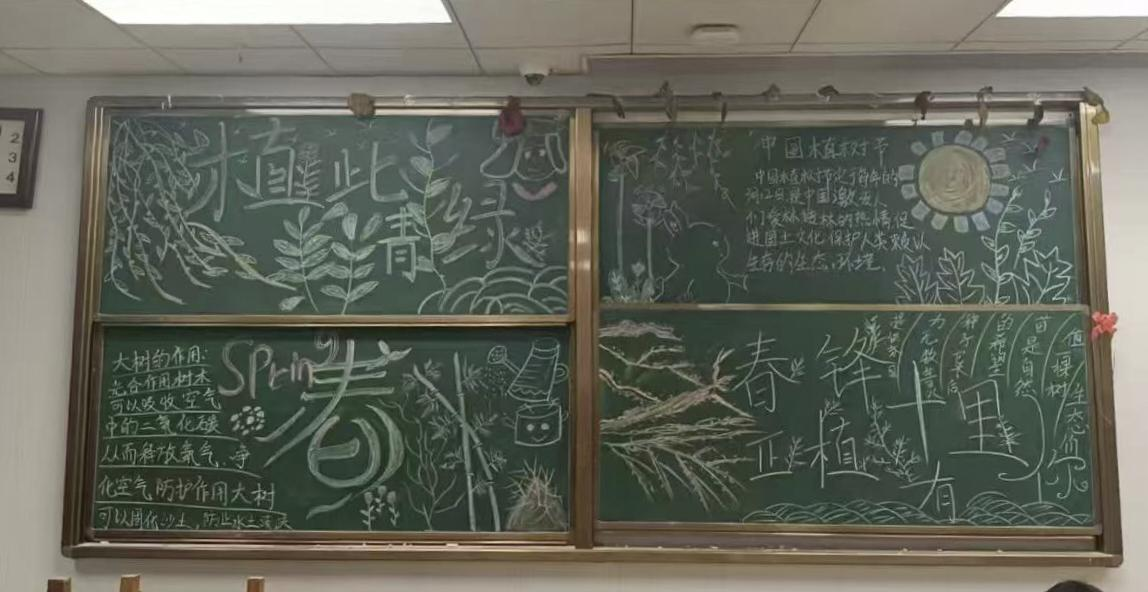 植此
青绿
中国植树节
中国植树节定于每年的
3月12日是中国激发人
们爱林造林的热情促
进国土文化保护人类赖以
生存的生态环境.
大树的作用:
光合作用树木
可以吸收空气
中的二氧化碳
从而释放氧气.净
化空气防护作用大树
可以固化沙土,防止水土流失
Spring
春
春锋十里
正植有你
值棵树
生态
苗是自然
的希望
种子
力无数
2
3
4